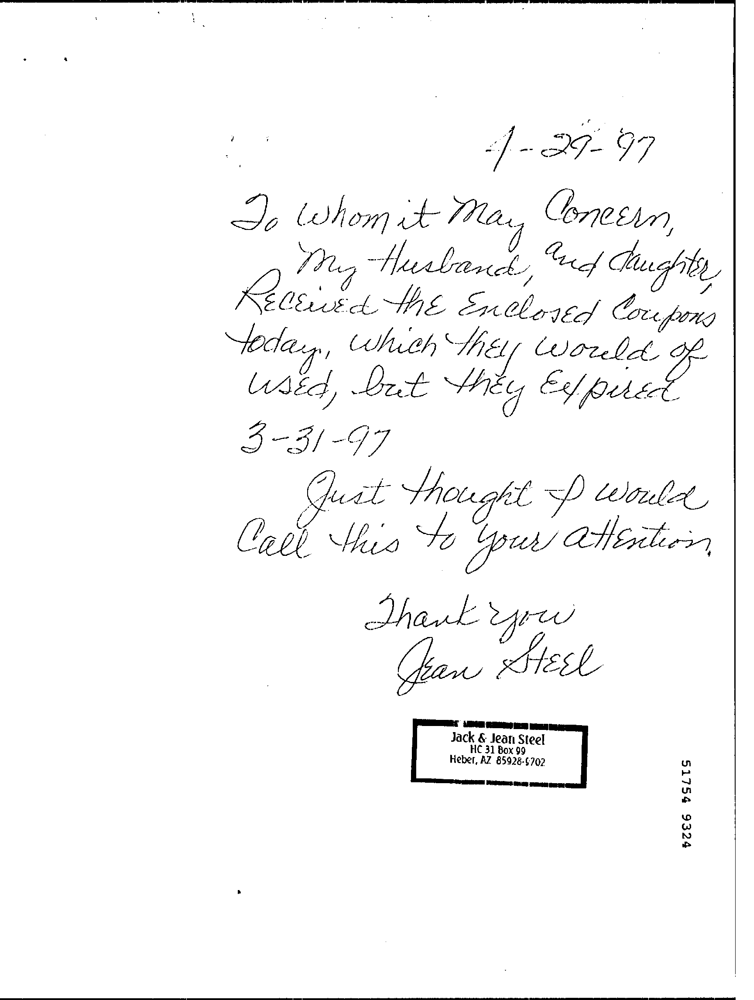 4-29-97
To Whom it May Concern,
My Husband, and daughter,
Received the Enclosed Coupons
today, which they would of
used, but they Expired
3-31-97
Just thought I would
Call this to your attention.
Thank you
Jean Steel
Jack & Jean Steel
HC 31 Box 99
Heber, AZ 85928-9702
51754 9324